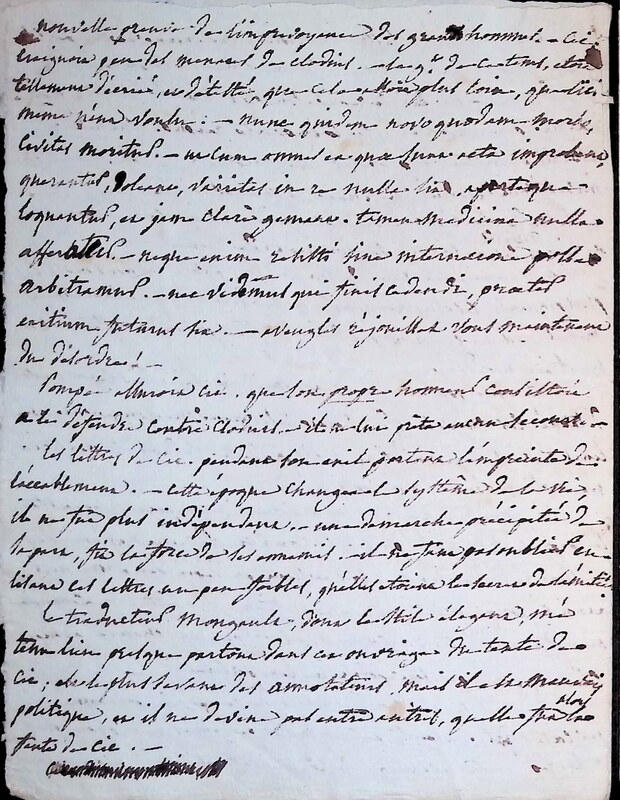 nouvelle preuve de l'imprevoyance des grands hommes. – Cic.
craignoit peu des menaces de clodius. –
tellement décrié, et détesté, que cela alloit plus loin, que
même n'eut voulu : – nunc quidem novo quodam morbo
civitas moritur. – ut cum omnes ea quae sunt acta improbent,
querantur, doleant, varietas in re nulla sit, aperteque
loquantur, et jam clare gemant. tamen medicina nulla
afferatur. – neque enim resisti sine internecione posse
arbitramur. – nec videmus qui finis cedendi, praeter
exitium futurus sit. – aveugles réjouissez vous maintenant
du désordre ! –
Pompée assuroit Cic. que son propre honneur consistoit
à le défendre contre Clodius – il ne lui prêta aucun secours –
les lettres de Cic. pendant son exil portent l'empreinte de
l'accablement. – cette époque changea le système de sa vie,
il ne fut plus indépendant. – une démarche précipitée de
sa part, fit la force de ses ennemis. – il ne faut pas oublier en
lisant ces lettres un peu foibles, qu'elles étoient le secret de l'amitié
Le traducteur Mongault, dont le stile élégant, m'a
tenu lieu presque partout dans cet ouvrage du texte de
Cic, est le plus savant des annotateurs, mais il est mauvais
politique, et il ne devine pas entre autres, quelle fut alors la
faute de Cic. –